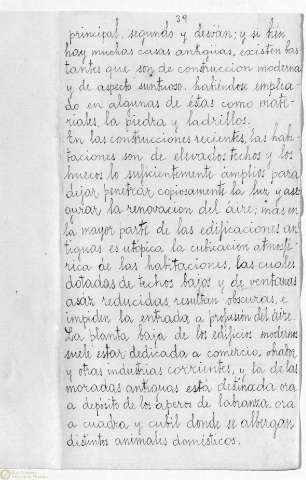 39
principal, segundo y desván; y si bien
hay muchas casas antiguas, existen bas
tantes que son de construccion moderna
y de aspecto suntuoso habiéndose emplea-
do en algunas de éstas como mate-
riales, la piedra y ladrillos.
En las construcciones recientes, las habi-
taciones son de elevados techos y los
huecos lo suficientemente amplios para
dejar penetrar copiosamente la luz y ase
gurar la renovacion del aire; mas en
la mayor parte de las edificaciones an
tiguas es utópica la cubicacion atmosfé-
rica de las habitaciones, las cuales
dotadas de techos bajos y de ventanas
asaz reducidas, resultan obscuras, e
impiden la entrada a profusion del aire.
La planta baja de los edificios modernos
suele estar dedicada a comercio,
y otras industrias corrientes, y la de las
moradas antiguas está destinada ora
a depósito de los aperos de labranza, ora
a cuadra y cubil donde se albergan
distintos animales domésticos.